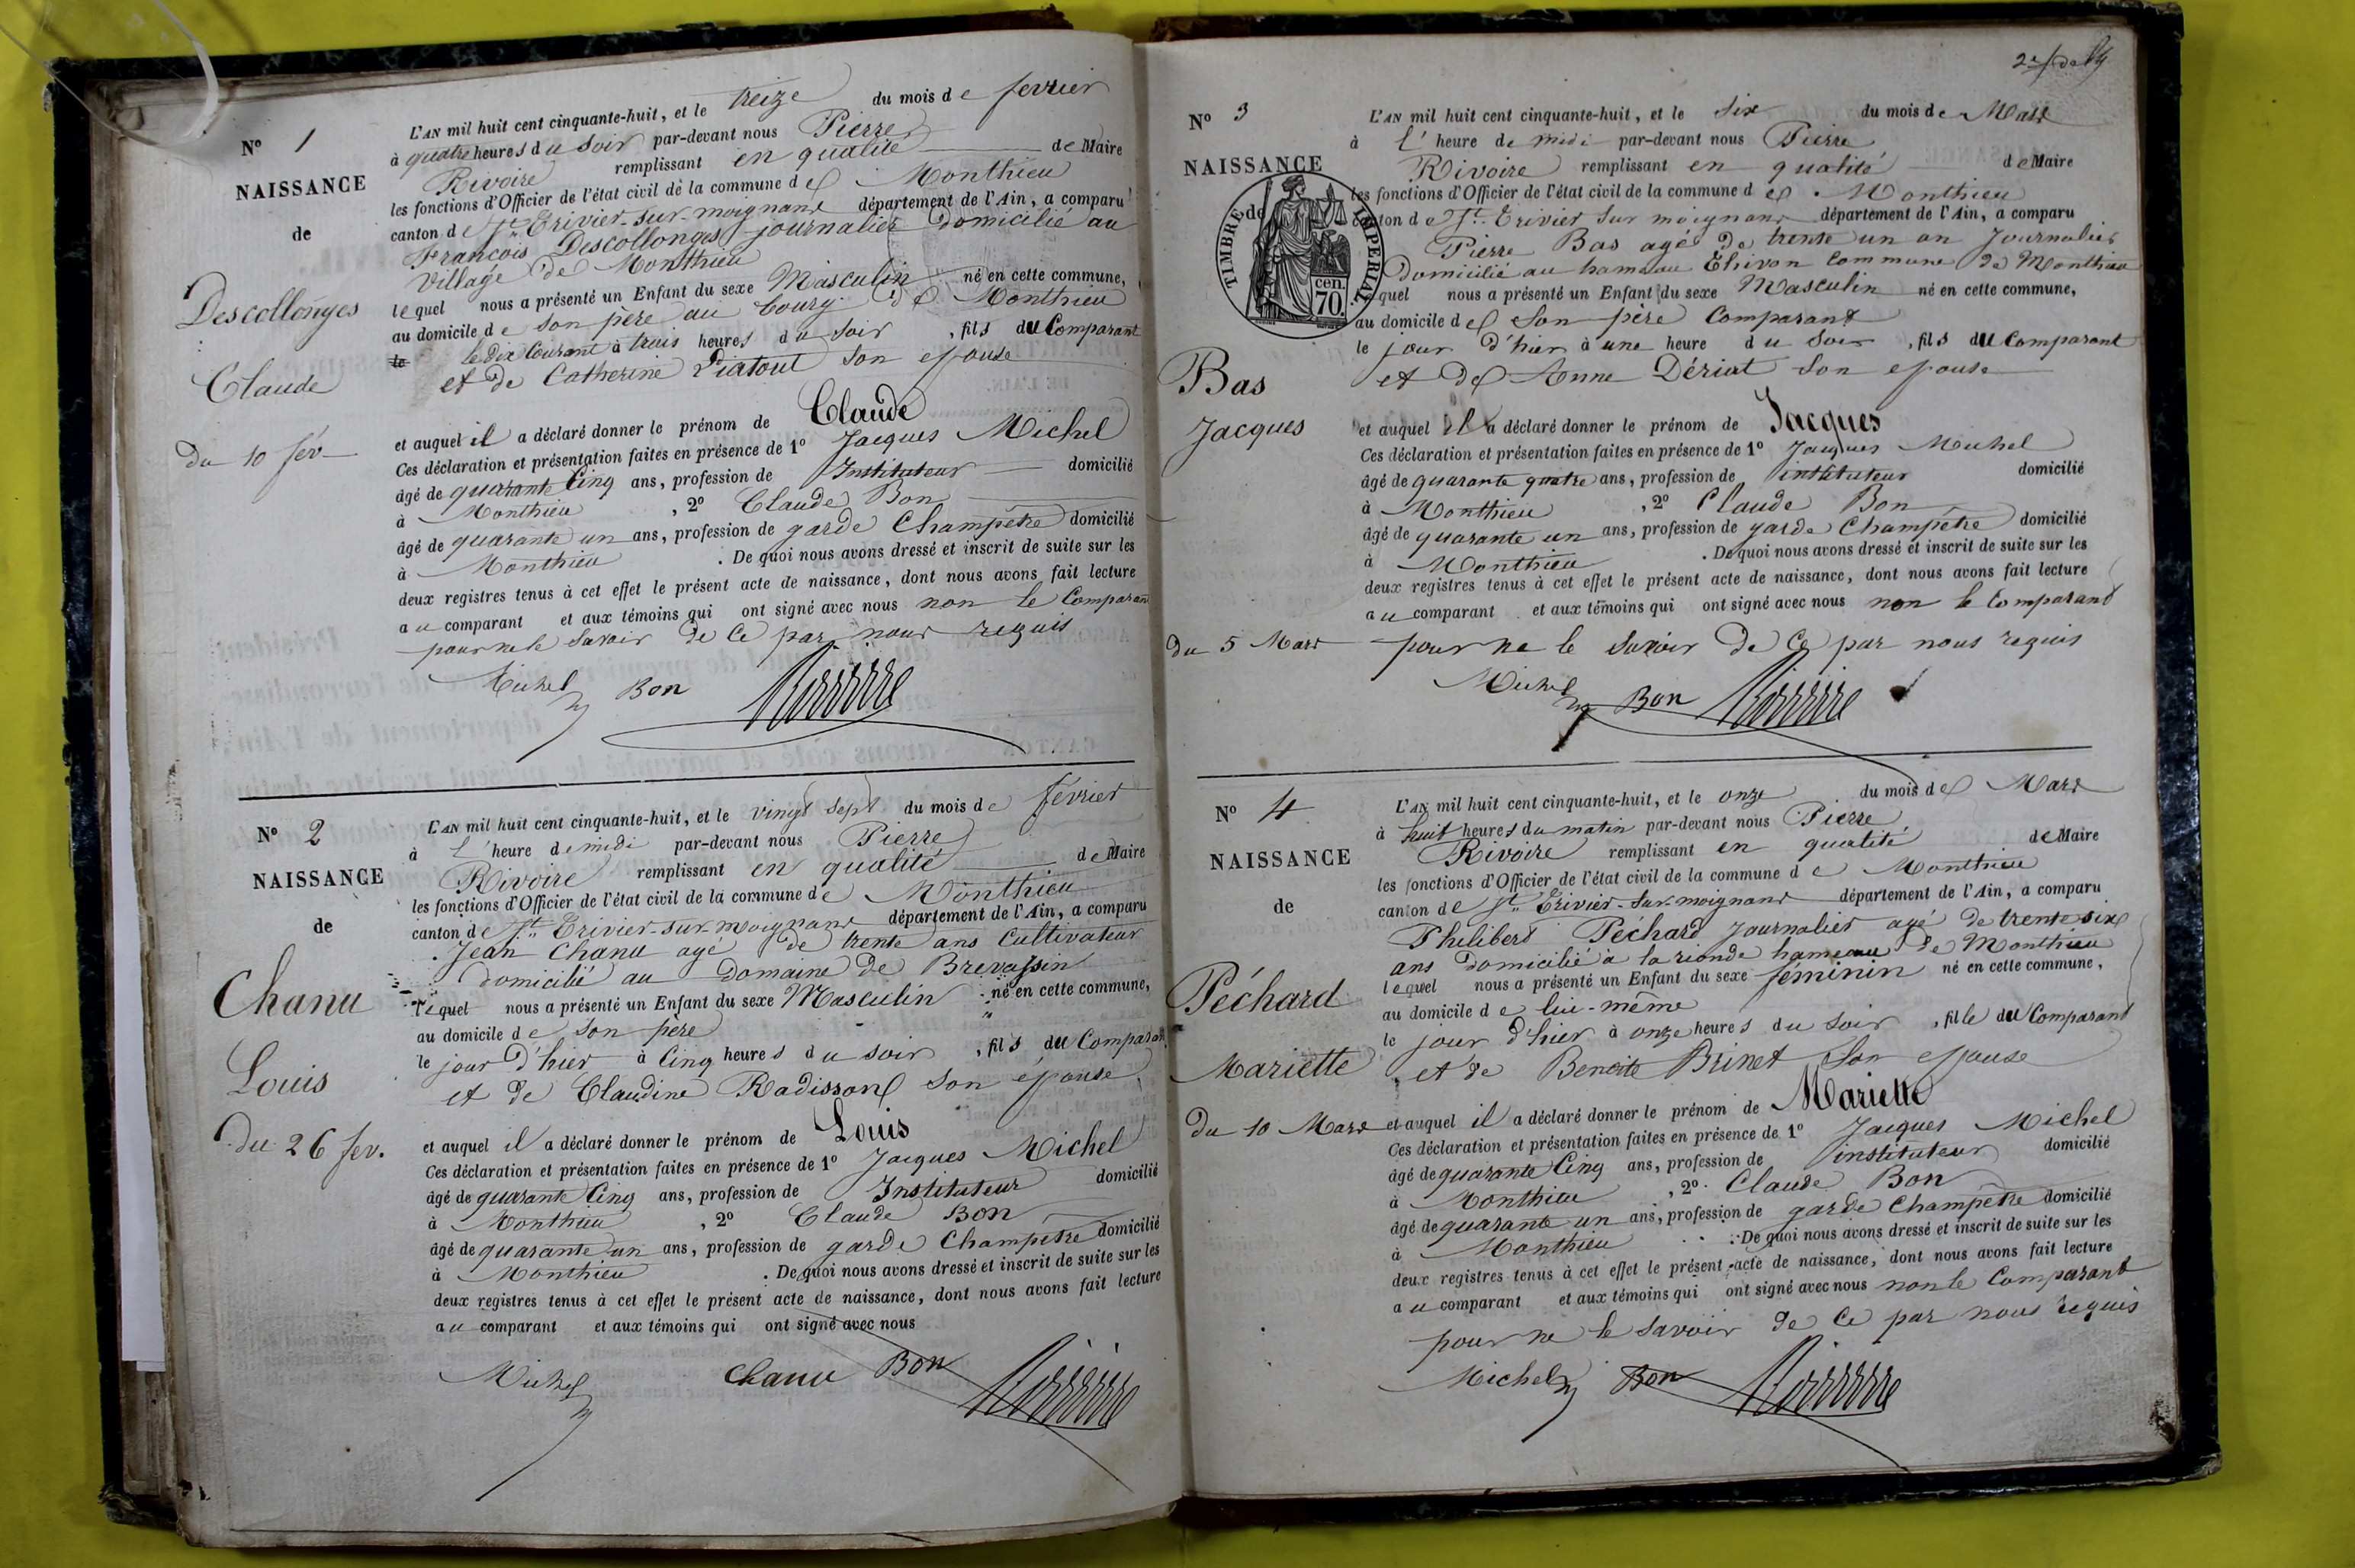 N° 1
NAISSANCE
de
Descollonges
Claude
Du 10 fév
L'AN mil huit cent cinquante-huit, et le treize du mois de fevrier
à quatre heures du soir par-devant nous Pierre
Rivoire remplissant en qualité de Maire
les fonctions d'Officier de l'état civil de la commune de Monthieu
canton de St Trivier-sur-moignans département de l'Ain, a comparu
François Descollonges journalier domicilié au
village de Monthieu
lequel nous a présenté un Enfant du sexe Masculin né en cette commune,
au domicile de son père au bourg de Monthieu
le le dix Courant à trois heures du soir, fils du Comparant
et de Catherine Piatout son epouse
et auquel il a déclaré donner le prénom de Claude
Ces déclaration et présentation faites en présence de 1° Jacques Michel
âgé de quarante Cinq ans, profession de Instituteur domicilié
à Monthieu, 2° Claude Bon
âgé de quarante un ans, profession de garde Champêtre domicilié
à Monthieu. De quoi nous avons dressé et inscrit de suite sur les
deux registres tenus à cet effet le présent acte de naissance, dont nous avons fait lecture
au comparant et aux témoins qui ont signé avec nous non le Comparant
pour ne le Savoir de Ce par nous requis
Michel Bon Rivoire
N° 2
NAISSANCE
de
Chanu
Louis
Du 26 fev.
L'AN mil huit cent cinquante-huit, et le vingt sept du mois de février
à l'heure de midi par-devant nous Pierre
Rivoire remplissant en qualité de Maire
les fonctions d'Officier de l'état civil de la commune de Monthieu
canton de St Trivier-sur-moignans département de l'Ain, a comparu
Jean Chanu agé de trente ans Cultivateur
domicilié au Domaine de Brevassin
lequel nous a présenté un Enfant du sexe Masculin né en cette commune,
au domicile de son père
le jour d'hier à Cinq heures du soir, fils du Comparant
et de Claudine Radisson son épouse
et auquel il a déclaré donner le prénom de Louis
Ces déclaration et présentation faites en présence de 1° Jacques Michel
âgé de quarante Cinq ans, profession de Instituteur domicilié
à Monthieu, 2° Claude Bon
âgé de quarante un ans, profession de garde Champêtre domicilié
à Monthieu. De quoi nous avons dressé et inscrit de suite sur les
deux registres tenus à cet effet le présent acte de naissance, dont nous avons fait lecture
au comparant et aux témoins qui ont signé avec nous
Michel Chanu Bon Rivoire
N° 3
NAISSANCE
de
TIMBRE IMPERIAL
cen.
70.
Bas
Jacques
Du 5 Mars
L'AN mil huit cent cinquante-huit, et le six du mois de Mars
à l'heure de midi par-devant nous Pierre
Rivoire remplissant en qualité de Maire
les fonctions d'Officier de l'état civil de la commune de Monthieu
canton de St. Trivier sur moignans département de l'Ain, a comparu
Pierre Bas agé de trente un an Journalier
Domicilié au hameau Thivon Commune de Monthieu
quel nous a présenté un Enfant du sexe Masculin né en cette commune,
au domicile de Son père Comparant
le jour d'hier à une heure du Soir, fils du Comparant
et de Anne Dériat son epouse
et auquel il a déclaré donner le prénom de Jacques
Ces déclaration et présentation faites en présence de 1° Jacques Michel
âgé de quarante quatre ans, profession de instituteur domicilié
à Monthieu, 2° Claude Bon
âgé de quarante un ans, profession de garde Champêtre domicilié
à Monthieu. De quoi nous avons dressé et inscrit de suite sur les
deux registres tenus à cet effet le présent acte de naissance, dont nous avons fait lecture
au comparant et aux témoins qui ont signé avec nous non le Comparant
pour ne le Savoir De Ce par nous requis
Michel Bon Rivoire
N° 4
NAISSANCE
de
Péchard
Mariette
Du 10 Mars
L'AN mil huit cent cinquante-huit, et le onze du mois de Mars
à huit heures du matin par-devant nous Pierre
Rivoire remplissant en qualité de Maire
les fonctions d'Officier de l'état civil de la commune de Monthieu
canton de St Trivier-Sur-moignans département de l'Ain, a comparu
Philibert Péchard Journalier agé de trente six
ans domicilié à la rionde hameau de Monthieu
lequel nous a présenté un Enfant du sexe féminin né en cette commune,
au domicile de lui-même
le jour d'hier à onze heures du soir, fille du Comparant
et de Benoite Brinet Son epouse
et auquel il a déclaré donner le prénom de Mariette
Ces déclaration et présentation faites en présence de 1° Jacques Michel
âgé de quarante Cinq ans, profession de instituteur domicilié
à Monthieu, 2° Claude Bon
âgé de quarante un ans, profession de garde Champêtre domicilié
à Monthieu. De quoi nous avons dressé et inscrit de suite sur les
deux registres tenus à cet effet le présent acte de naissance, dont nous avons fait lecture
au comparant et aux témoins qui ont signé avec nous non le Comparant
pour ne le Savoir de Ce par nous requis
Michel Bon Rivoire